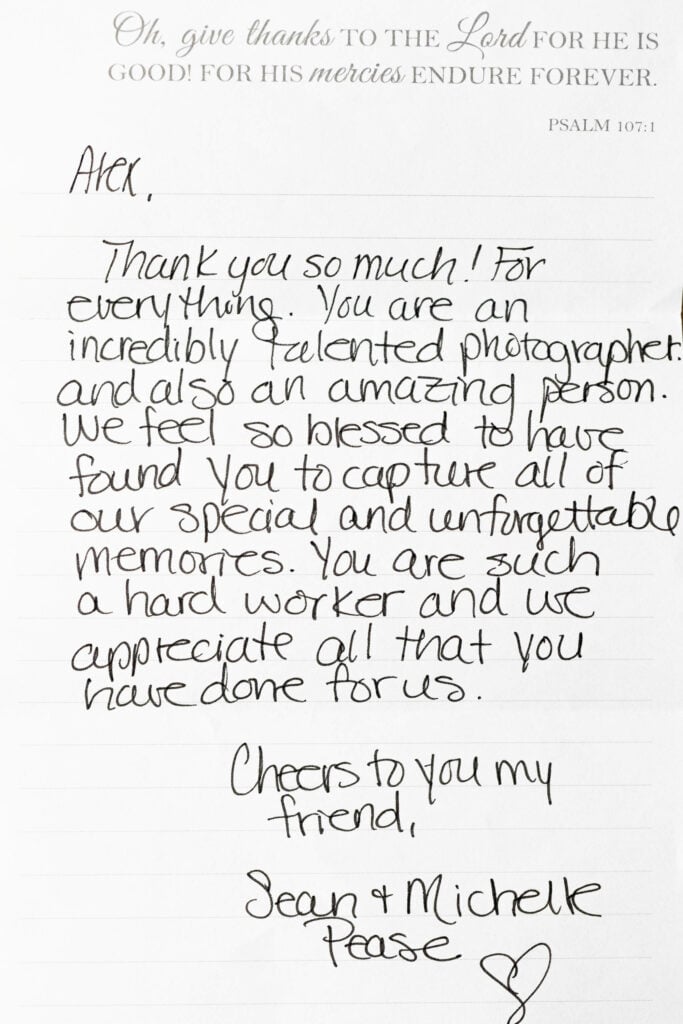 Oh, give thanks TO THE Lord FOR HE IS
GOOD! FOR HIS mercies ENDURE FOREVER.
PSALM 107:1
Alex,
Thank you so much! For
everything. You are an
incredibly talented photographer
and also an amazing person.
We feel so blessed to have
found you to capture all of
our special and unforgettable
memories. You are such
a hard worker and we
appreciate all that you
have done for us.
Cheers to you my
friend,
Sean + Michelle
Pease